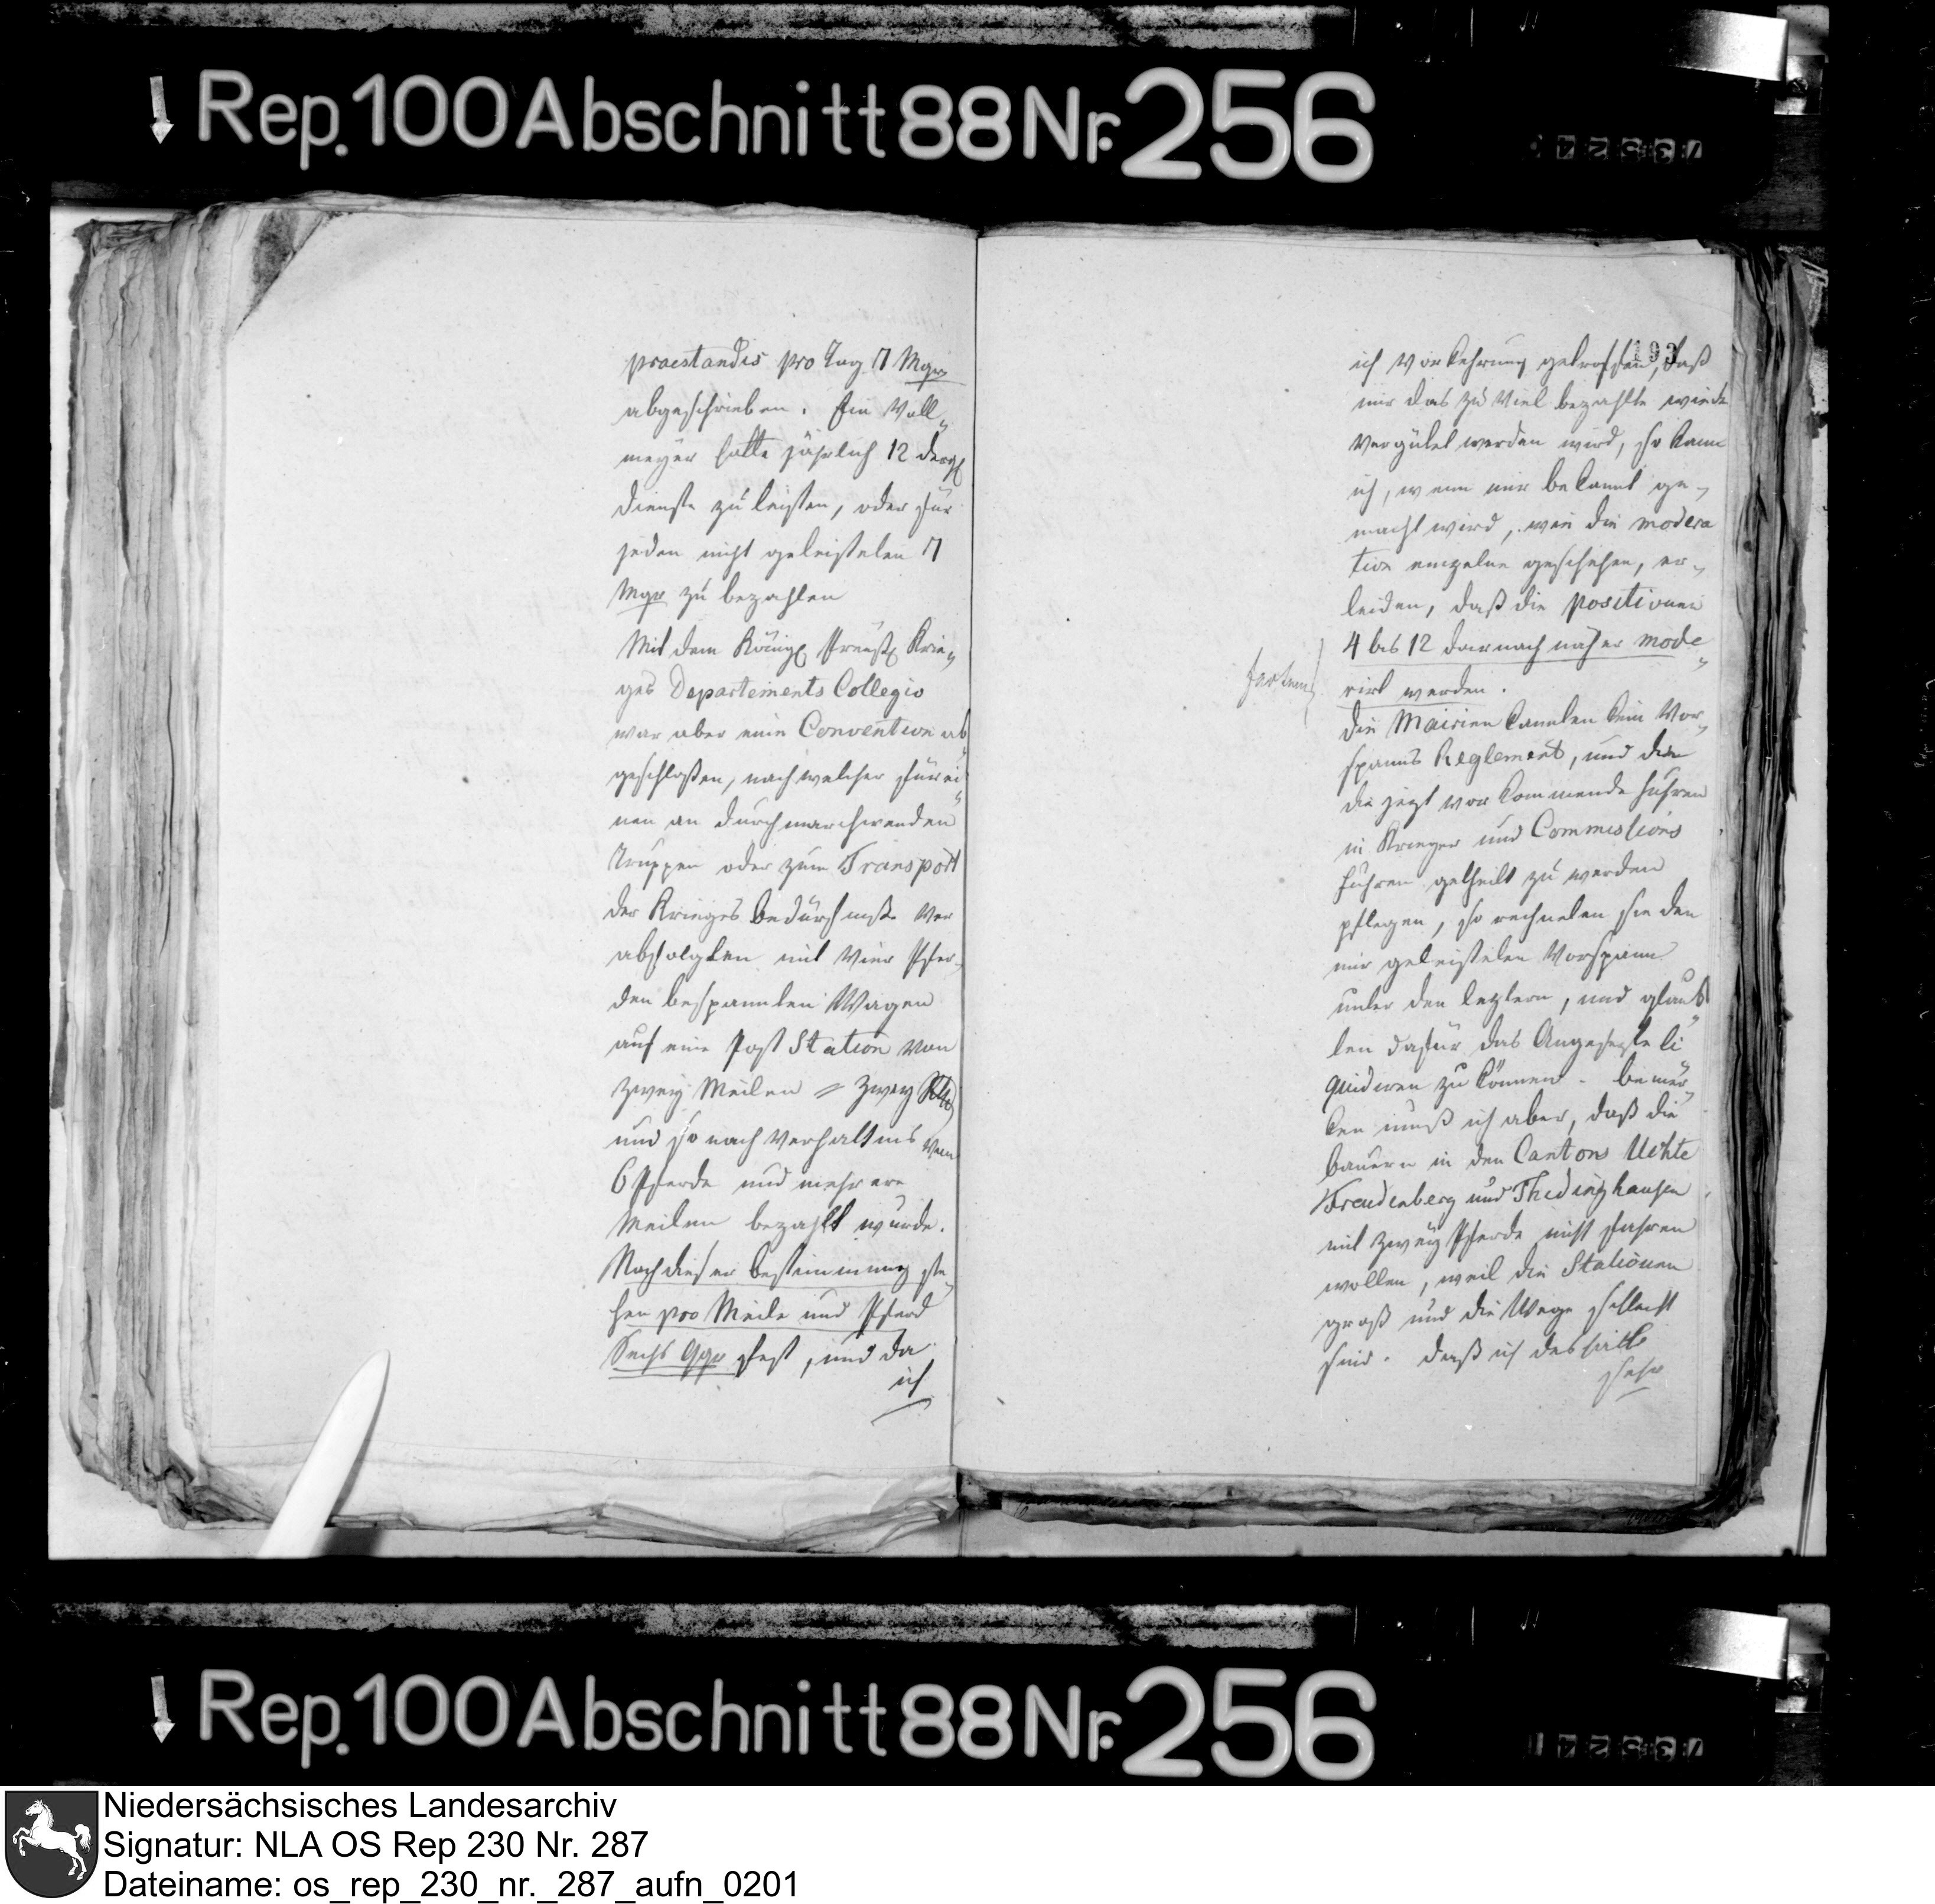 Rep. 100 Abschnitt 88 Nr. 256
praestandis pro Tag 7 Mgr
abgeschrieben. Ein Voll„
meyer hatte jährlich 12 dergl
dienste zu leisten, oder für
jeden nicht geleisteten 7
Mgr zu bezahlen
Mit dem Königl Preußl Krie„
ges Departements Collegio
war aber eine Convention ab
geschloßen, nach welcher für ei„
nen an durchmarschirenden
Truppen oder zum Transport
der Krieges bedürfniße ver
abfolgten mit vier Pfer„
den bespannten Wagen
auf eine Post Station von
zwey Meilen = zwey Rthl
und so nach Verhaltnis von
6 Pferde und mehrere
Meilen bezahlt wurde.
Nach dieser bestimmung ste„
hen pro Meile und Pferd
Sechs Ggr fest, und da
ich
193
ich Vorkehrung getroffen, daß
mir das zu viel bezahlte wieder
vergütet werden wird, so kann
ich, wenn mir bekannt ge„
macht wird, wie die modera
tion einzelne geschehen, er„
leiden, daß die positionen
4 bis 12 darnach näher mode„
rirt werden.
die Mairien kannten kein Vor„
spanns Reglement, und da
die jezt vorkommende Fuhren
in Krieger und Commissions
Fuhren getheilt zu werden
pflegen, so rechneten sie den
mir geleisteten Vorspann
unter den leztern, und glaub„
ten dafür das Angesezte li„
quidiren zu können. bemer„
ken muß ich aber, daß die
bauern in den Cantons Uchte
Freudenberg und Thedinghausen
mit zwey Pferde nicht fahren
wollen, weil die Stationen
groß und die Wege schlecht
sind. daß ich deshalb
sehr
Rep. 100 Abschnitt 88 Nr. 256
Niedersächsisches Landesarchiv
Signatur: NLA OS Rep 230 Nr. 287
Dateiname: os_rep_230_nr._287_aufn_0201